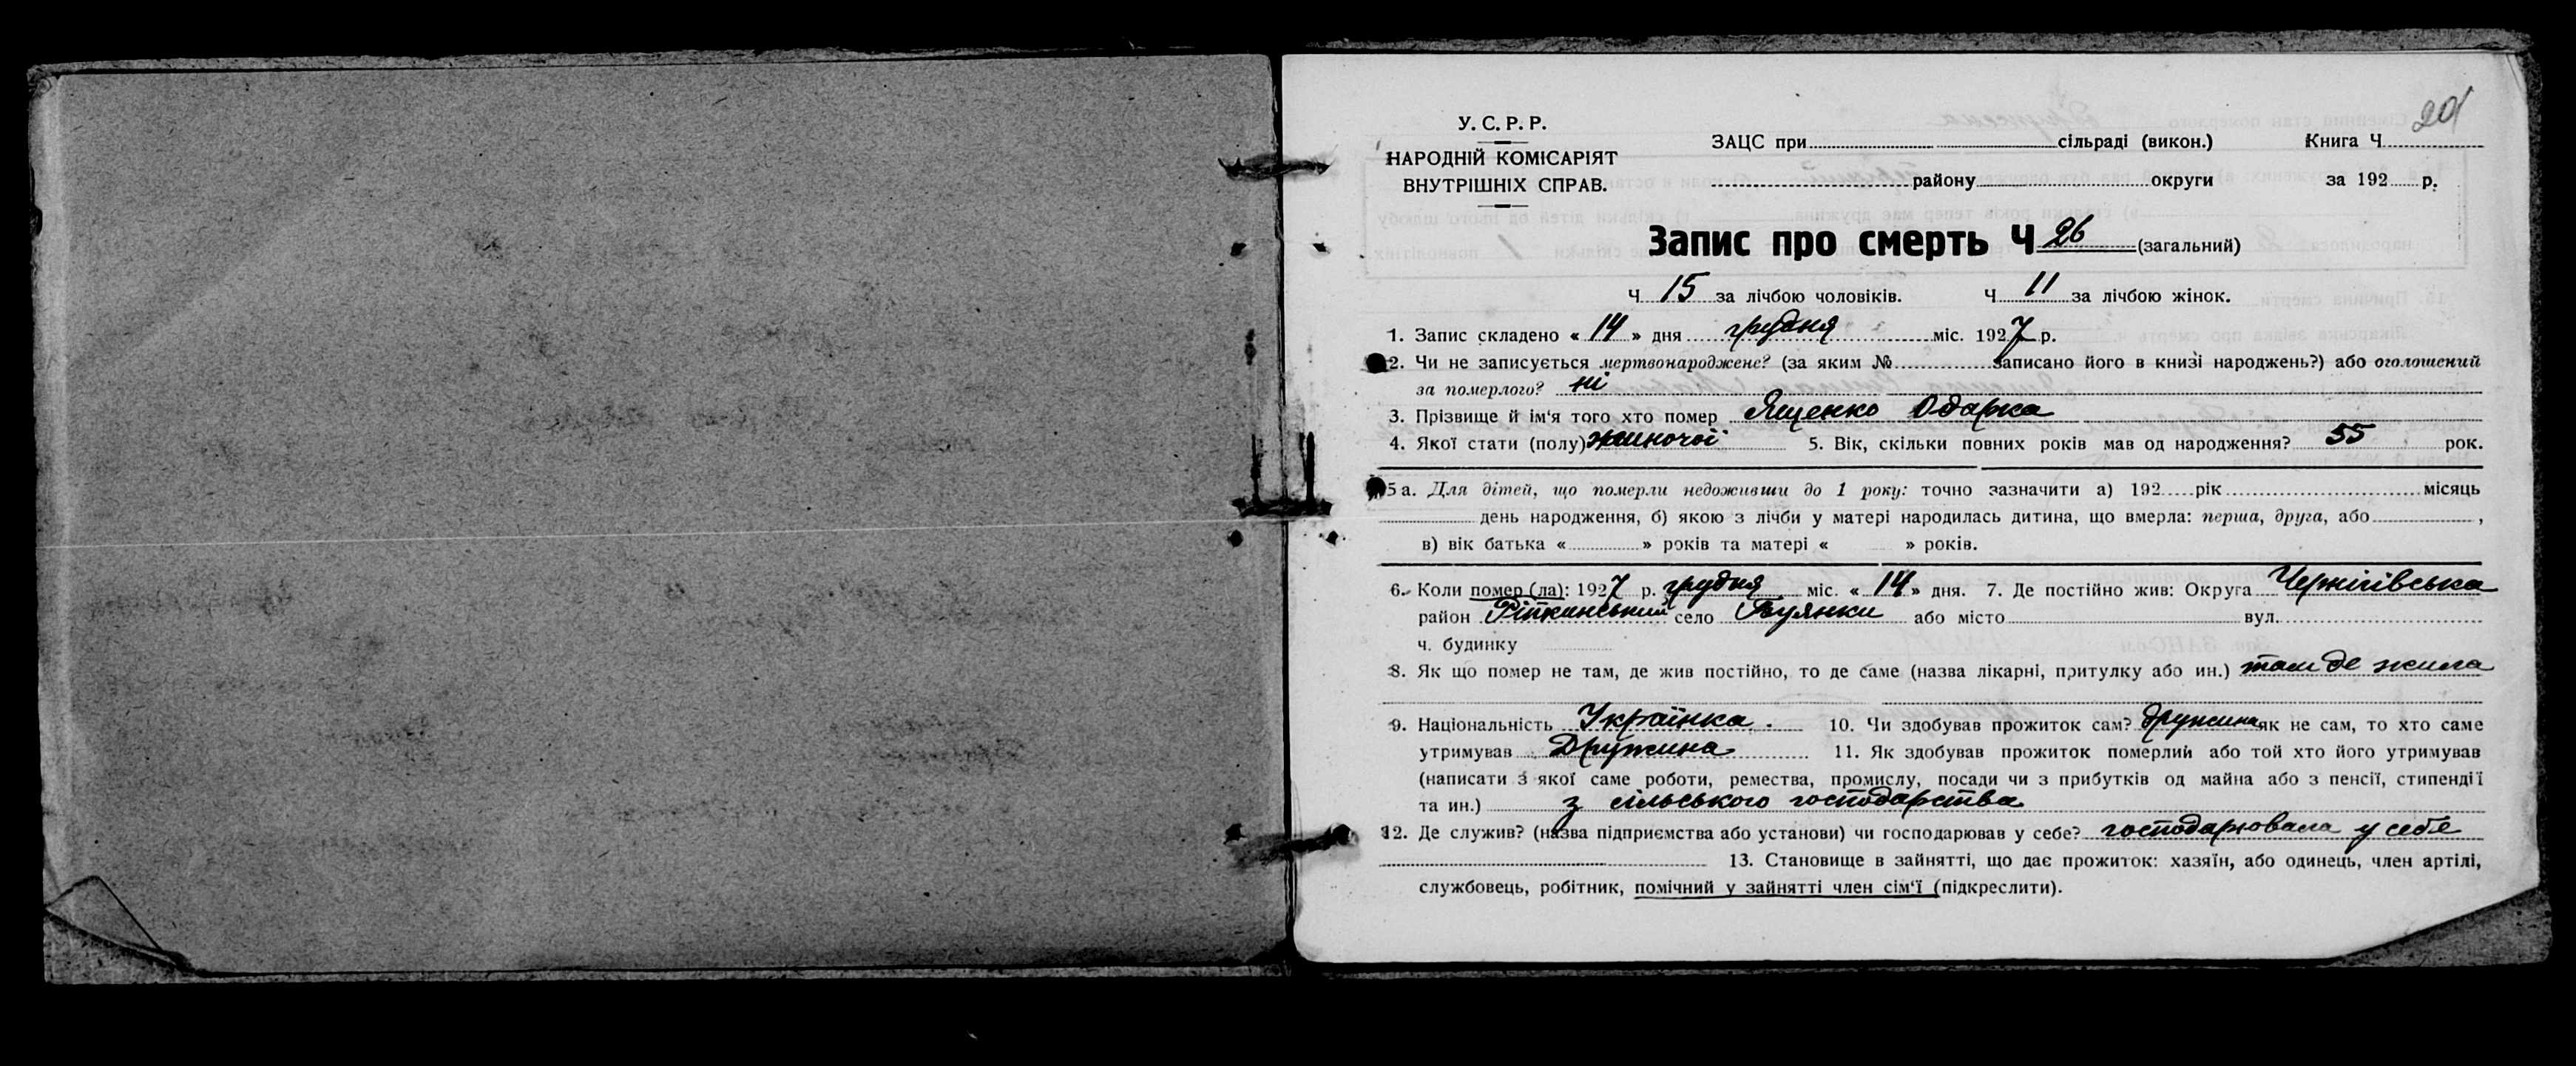 20
У. С. Р. Р.
НАРОДНІЙ КОМІСАРІЯТ
ВНУТРІШНІХ СПРАВ.
ЗАЦС при сільраді (викон.) Книга Ч.
району округи за 192 р.
Запис про смерть Ч 26 (загальний)
Ч 15 за лічбою чоловіків. Ч 11 за лічбою жінок.
1. Запис складено « 14 » дня грудня міс. 1927 р.
2. Чи не записується мертвонароджене? (за яким № записано його в книзі народжень?) або оголошений
за померлого? ні
3. Прізвище й ім'я того хто помер Ященко Одарка
4. Якої стати (полу) жиночої 5. Вік, скільки повних років мав од народження? 55 рок.
5 а. Для дітей, що померли недоживши до 1 року: точно зазначити а) 192 рік місяць
день народження, б) якою з лічби у матері народилась дитина, що вмерла: перша, друга, або ,
в) вік батька « » років та матері « » років.
6. Коли помер (ла): 1927 р. грудня міс. « 14 » дня. 7. Де постійно жив: Округа Чернігівська
район Ріпкинський село Буянки або місто вул.
ч. будинку
8. Як що помер не там, де жив постійно, то де саме (назва лікарні, притулку або ин.) там де жила
9. Національність Українка. 10. Чи здобував прожиток сам? дружина як не сам, то хто саме
утримував Дружина 11. Як здобував прожиток померлий або той хто його утримував
(написати з якої саме роботи, ремества, промислу, посади чи з прибутків од майна або з пенсії, стипендії
та ин.) з сільського господарства
12. Де служив? (назва підприємства або установи) чи господарював у себе? господарювала у себе
13. Становище в зайнятті, що дає прожиток: хазяїн, або одинець, член артілі,
службовець, робітник, помічний у зайнятті член сім'ї (підкреслити).